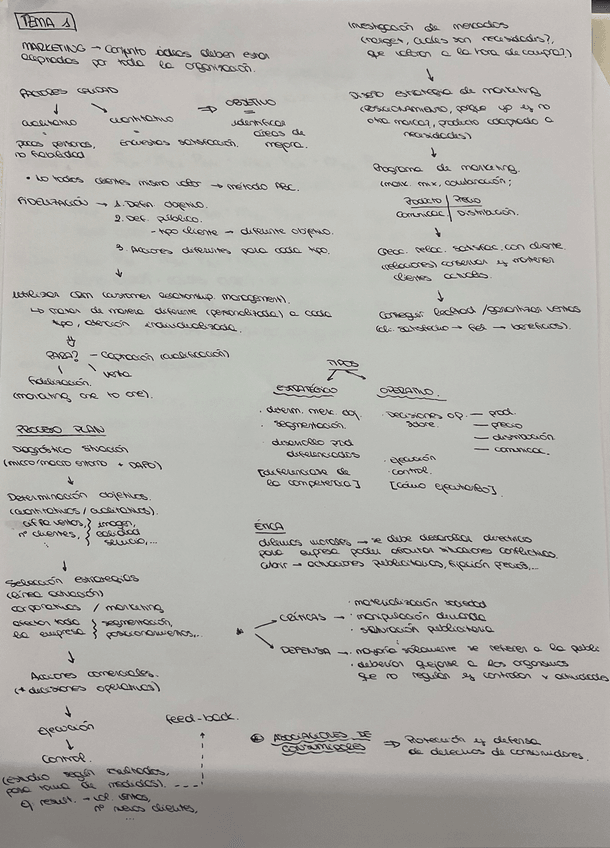 TEMA 1
MARKETING → Conjunto ideas deben estar
aceptadas por toda la organización.
FACTORES CALIDAD
cualitativo cuantitativo ⇒ OBJETIVO
=
pocas personas, encuestas satisfacción. identificar
no fiabilidad áreas de
mejora.
• No todos clientes mismo valor → método ABC.
FIDELIZACIÓN → 1. Defin. objetivo.
2. Def. público.
- tipo cliente → diferente objetivo.
3. Acciones diferentes para cada tipo.
↓
utilizar CRM (customer relationship management).
↳ tratar de manera diferente (personalizada) a cada
tipo, atención individualizada.
⇓
PARA? - captación (cualificación)
fidelización. venta
(marketing one to one).
PROCESO PLAN
Diagnóstico situación
(micro/macro entorno + DAFO)
↓
Determinación objetivos.
(cuantitativos / cualitativos).
cifra ventas, } imagen,
nº clientes, } calidad
: } servicio,...
↓
Selección estrategias
(línea actuación)
corporativas / marketing
afectan toda } segmentación,
la empresa } posicionamientos,..
↓
Acciones comerciales.
(+ decisiones operativas)
↓
ejecución feed-back.
↓
Control.
(estudio según resultados,
para toma de medidas).
ej result. → vol. ventas,
nº nuevos clientes,
...
Investigación de mercados
(target, cuales son necesidades?,
que valoran a la hora de compra?)
↓
Diseño estrategia de marketing
(posicionamiento, porque yo y no
otra marca?, producto adaptado a
necesidades)
↓
Programa de marketing.
(mark. mix, combinación;
Producto | Precio
comunicac | Distribución.
↓
Creac. relac. satisfac. con cliente
(relaciones) conservar y mantener
clientes actuales.
↓
Conseguir lealtad / garantizar ventas
(cl. satisfecho → fiel → beneficios).
TIPOS
ESTRATÉGICO OPERATIVO.
· determ. merc. obj. · Decisiones op. — prod.
· segmentación. sobre. — precio
· desarrollo prod — distribución
diferenciados — comunicac.
[diferenciarse de · ejecución
la competencia] · control.
[cómo ejecutarlo].
ÉTICA
dilemas morales → se debe desarrollar directrices
para empresa poder afrontar situaciones conflictivas.
cubrir → actuaciones publicitarias, fijación precios,...
CRÍTICAS → · materialización sociedad
· manipulación demanda
· saturación publicitaria
DEFENSA → · mayoría solamente se refieren a la public
· deberían quejarse a los organismos
que no regulan y controlan x actividades
ASOCIACIONES DE ⇒ Protección y defensa
CONSUMIDORES de derechos de consumidores.